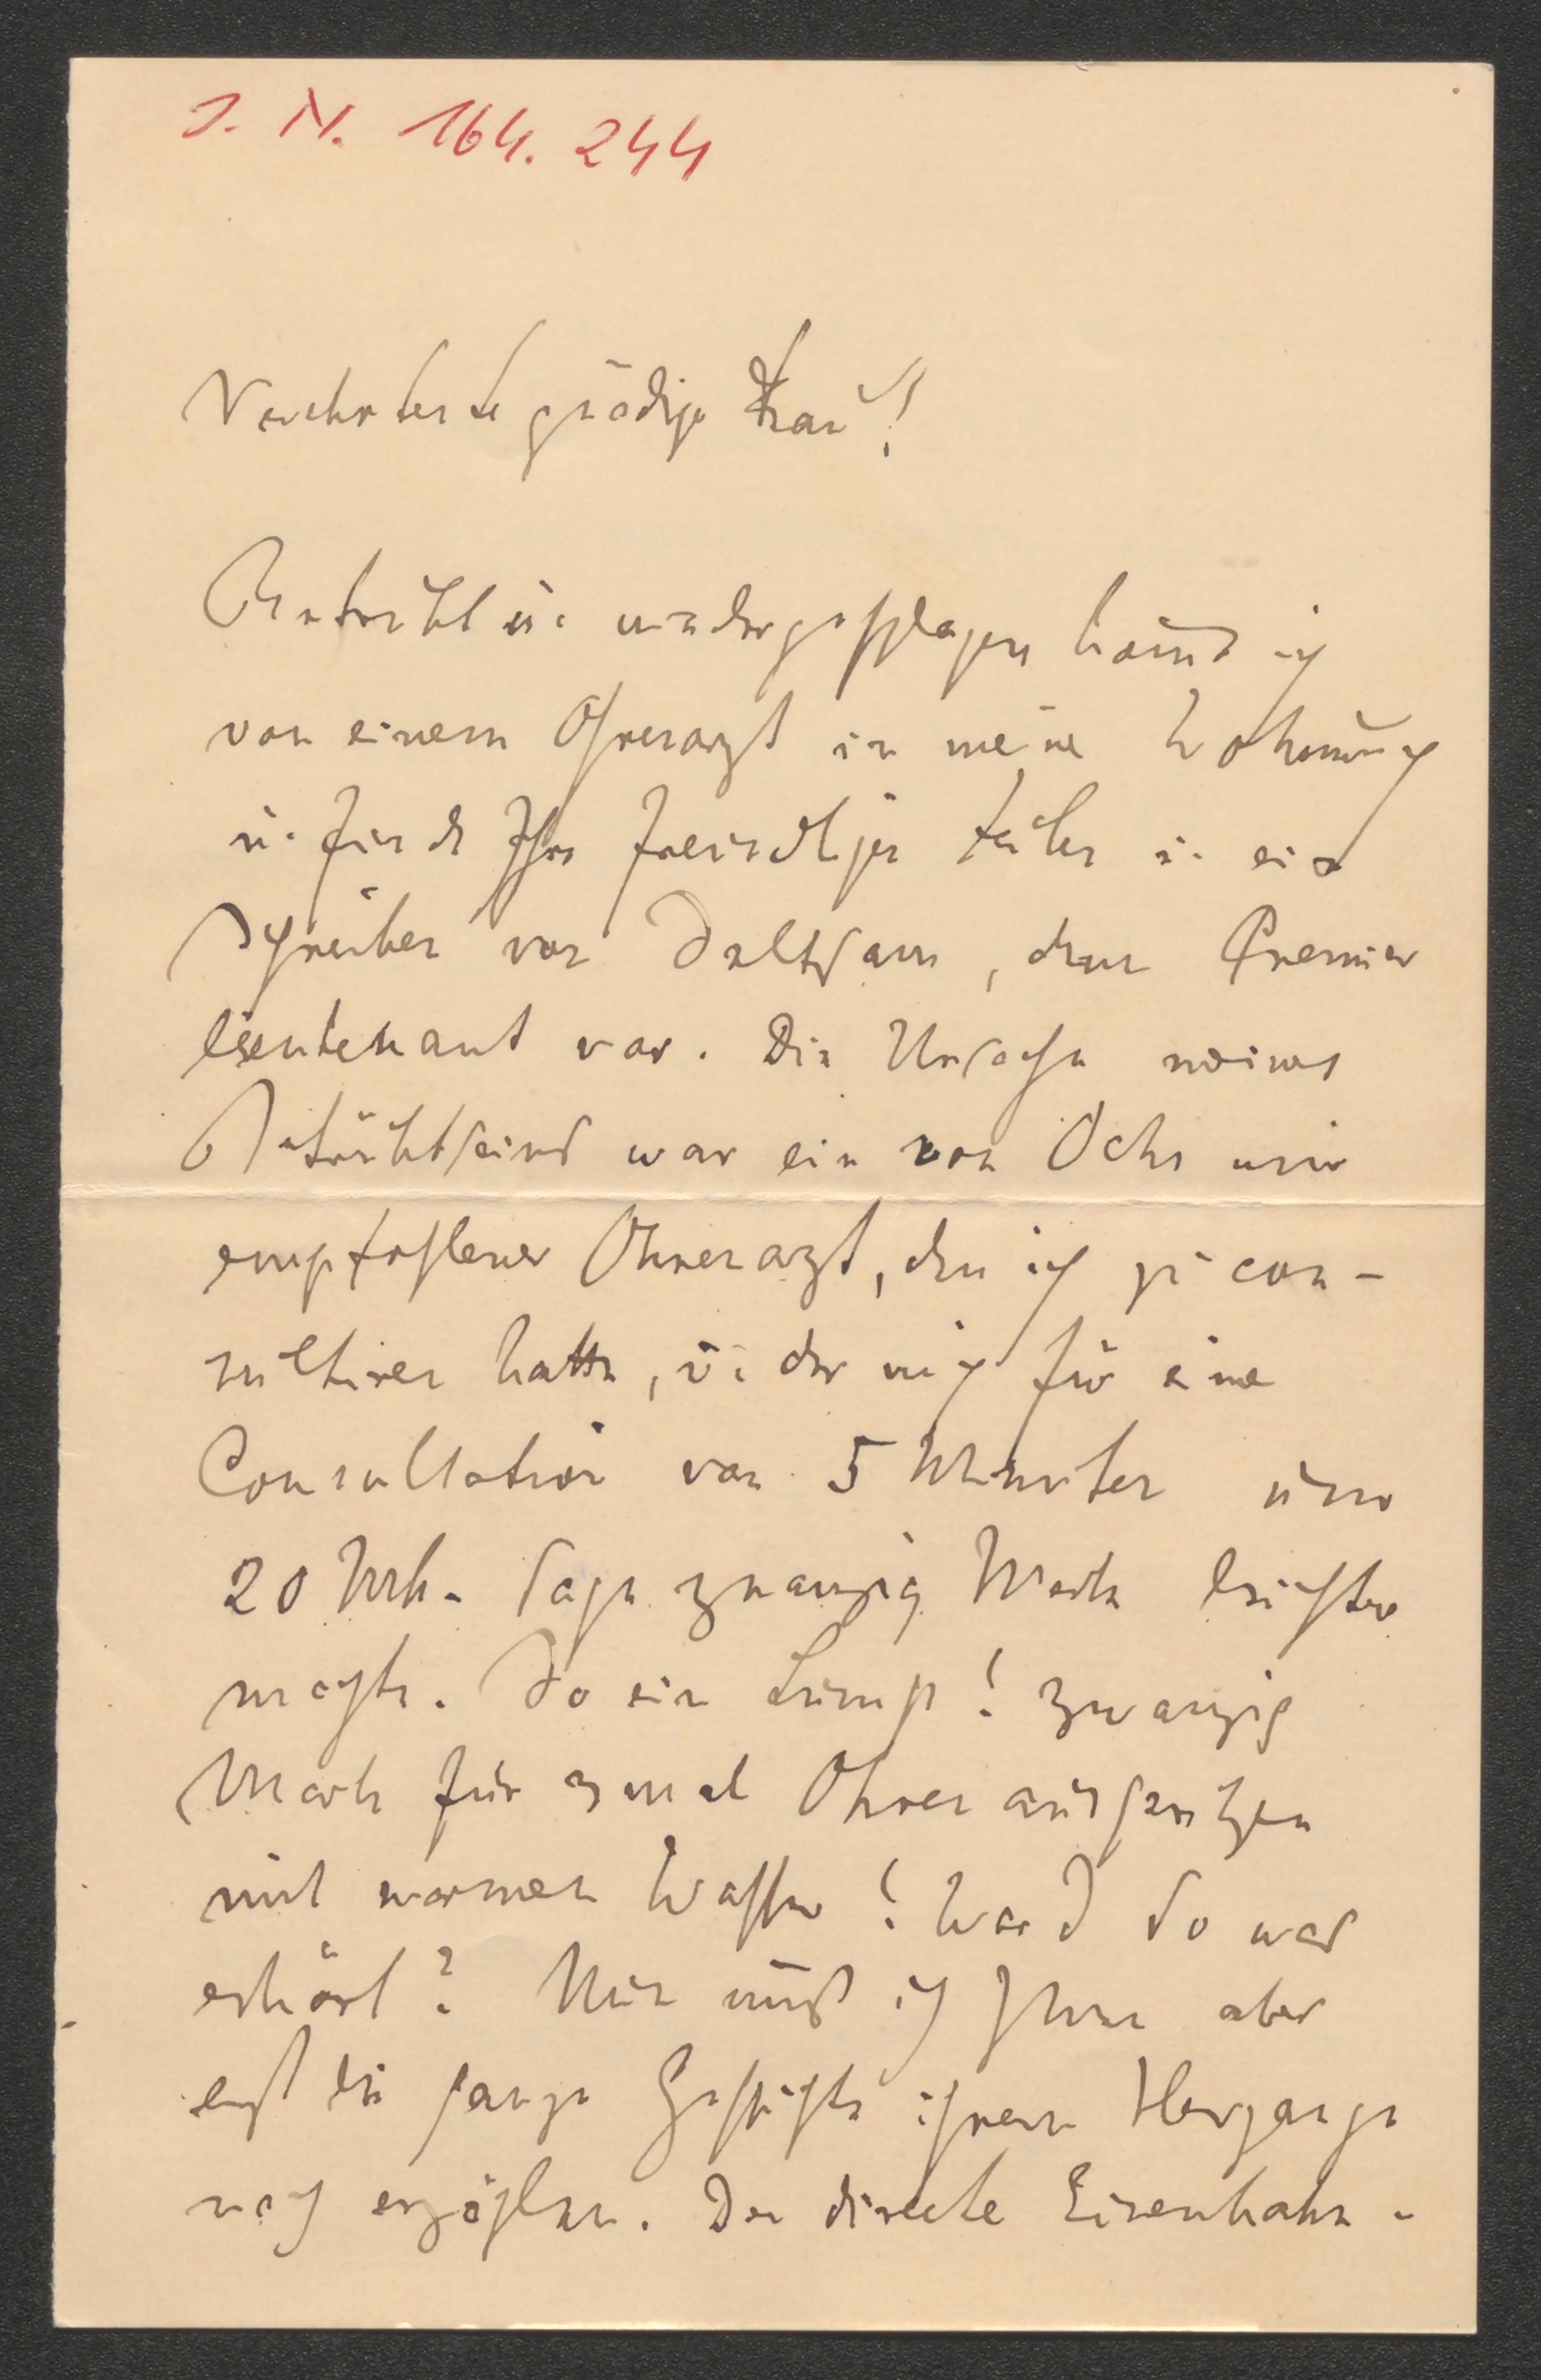 I. N. 164.244
Verehrteste gnädige Frau!
Betrübt u. niedergeschlagen komme ich
von einem Ohrenarzt in meine Wohnung
u. finde Ihre freundlichen Zeilen u. ein
Schreiben von , dem Premier
lieutenant vor. Die Ursache meines
Betrübtseins war ein von Ochs mir
empfohlener Ohrenarzt, den ich zu con-
sultiren hatte, u. der mich für eine
Consultation von 5 Minuten um
20 Mk. sage zwanzig Mark leichter
machte. So ein Lump! zwanzig
Mark für 3 mal Ohren ausspritzen
mit warmen Wasser! Ward so was
erhört? Nun muß ich Ihnen aber
erst die ganze Geschichte ihrem Hergange
nach erzählen. Der directe Eisenbahn-